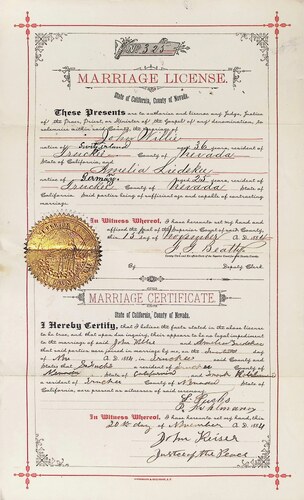 No 325
MARRIAGE LICENSE.
State of California, County of Nevada.
These Presents are to authorize and license any Judge, Justice
of the Peace, Priest, or Minister of the Gospel of any denomination, to
solemnize within said County, the marriage of
John
native of Switzerland aged 36 years, resident of
Truckee County of Nevada
State of California, and
Amelia
native of Germany aged 25 years, resident of
Truckee County of Nevada State of
California. Said parties being of sufficient age and capable of contracting
marriage.
In Witness Whereof, I have hereunto set my hand and
affixed the Seal of the Superior Court of said County,
this 15 day of November A.D. 1884
Beatty
Deputy Clerk.
MARRIAGE CERTIFICATE.
State of California, County of Nevada.
I Hereby Certify, that I believe the facts stated in the above license
to be true, and that upon due inquiry, there appears to be no legal impediment
to the marriage of said John and Amelia
that said parties were joined in marriage by me on the
of Nov A.D. 1884 in Truckee County and
State; that of Truckee County of
Nevada State of California and Frank
resident of Truckee County of Nevada State of
California, were present as witnesses of said ceremony.
In Witness Whereof, I have hereunto set my hand, this
20th day of November A.D. 1884
John Keiser
Justice of the Peace